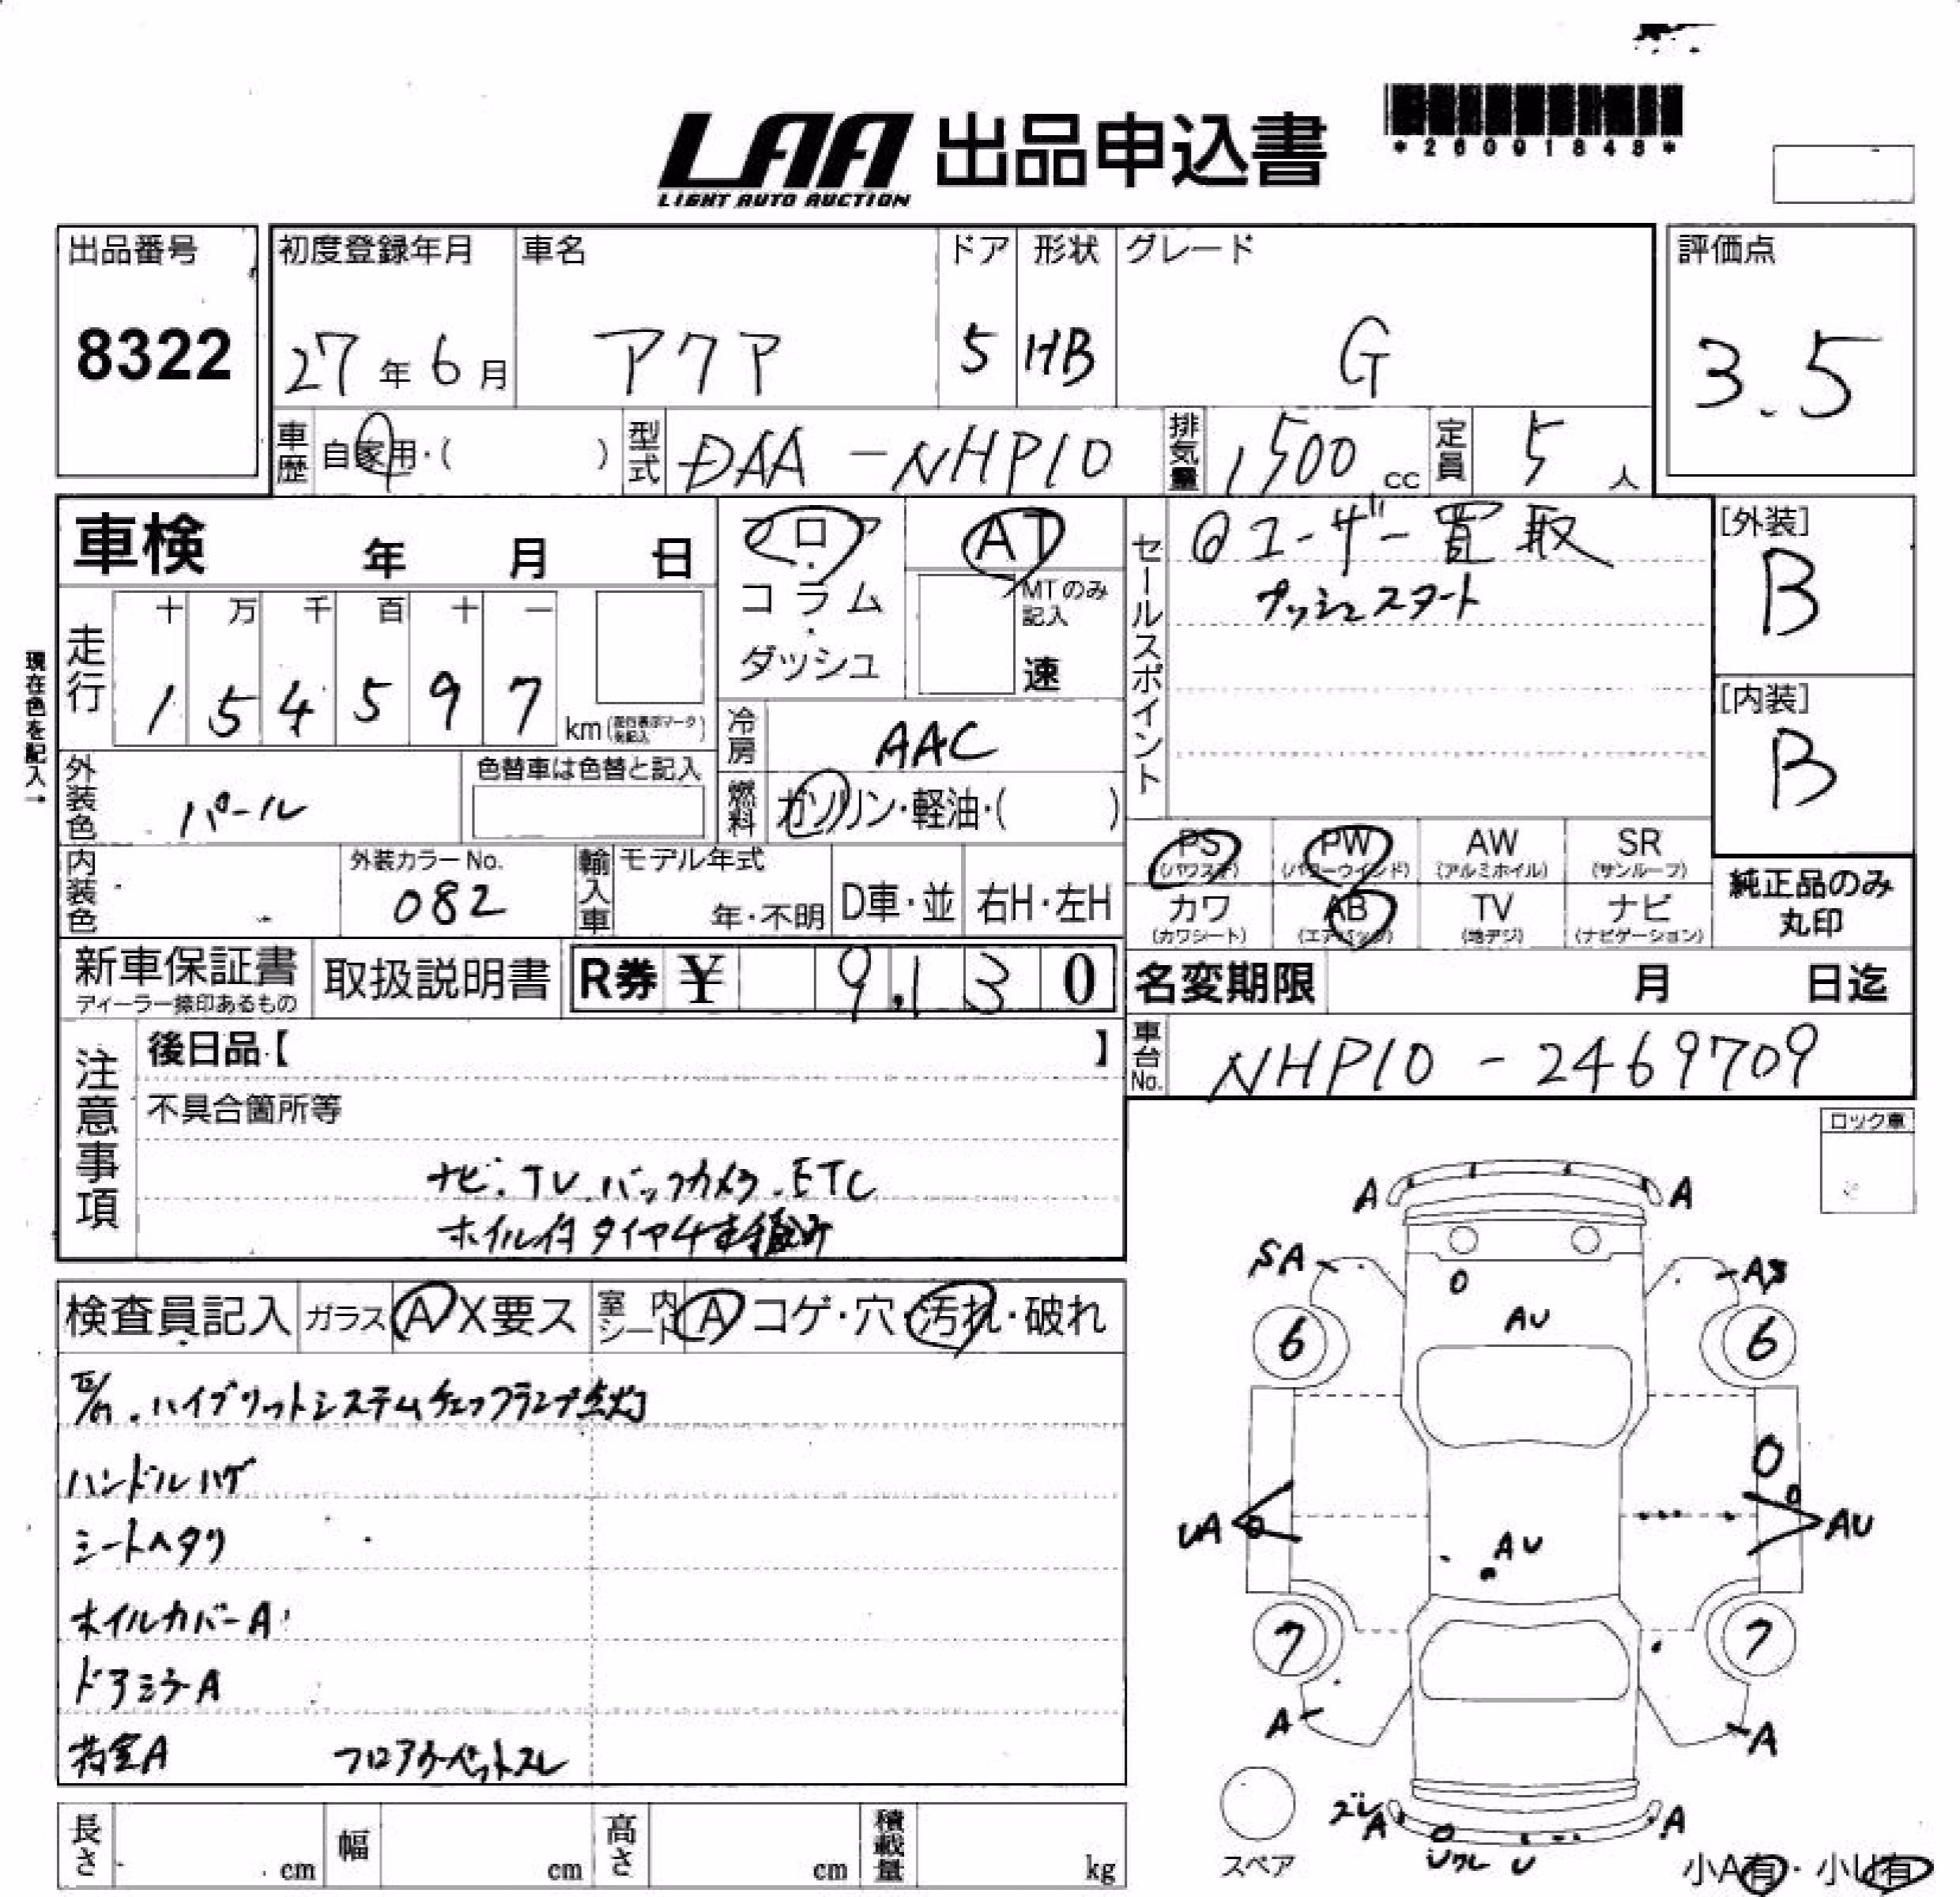 LAA 出品申込書
LIGHT AUTO AUCTION
*26091848*
出品番号 初度登録年月 車名 ドア 形状 グレード 評価点
8322 27年6月 アクア 5 HB G 3.5
車歴 自家用・( ) 型式 DAA-NHP10 排気量 1500cc 定員 5人
車検 年 月 日
フロア・コラム・ダッシュ
AT
MTのみ記入
速
セールスポイント
@ユーザー買取
プッシュスタート
[外装]
B
[内装]
B
現在色を記入→
走行 十 万 千 百 十 一
1 5 4 5 9 7 km
冷房 AAC
燃料 ガソリン・軽油・( )
外装色 パール 色替車は色替と記入
内装色 外装カラーNo. 082
輸入車 モデル年式 年・不明 D車・並 右H・左H
PS AW SR PW
(パワステ) (パワーウインド) (アルミホイル) (サンルーフ)
カワ AB TV ナビ
(カワシート) (エアバッグ) (地デジ) (ナビゲーション)
純正品のみ
丸印
新車保証書 取扱説明書 R券 ¥ 9,130
ディーラー捺印あるもの
名変期限 月 日迄
車台No. NHP10-2469709
注意事項
後日品【 】
不具合箇所等
ナビ.TV.バックカメラ.ETC
ホイル付タイヤ4本積込み
ロック車
検査員記入 ガラス A X要ス 室内シート A コゲ・穴・汚れ・破れ
ハイブリットシステムチェックランプ点灯
ハンドルハゲ
シートヘタリ
ホイルカバーA
ドアミラーA
荷室A フロアカーペットスレ
長さ cm 幅 cm 高さ cm 積載量 kg
A A
SA
AU
6 6
UA AU
AU
7 7
A A
ズレ
A A
U
スペア
小A有・小U有